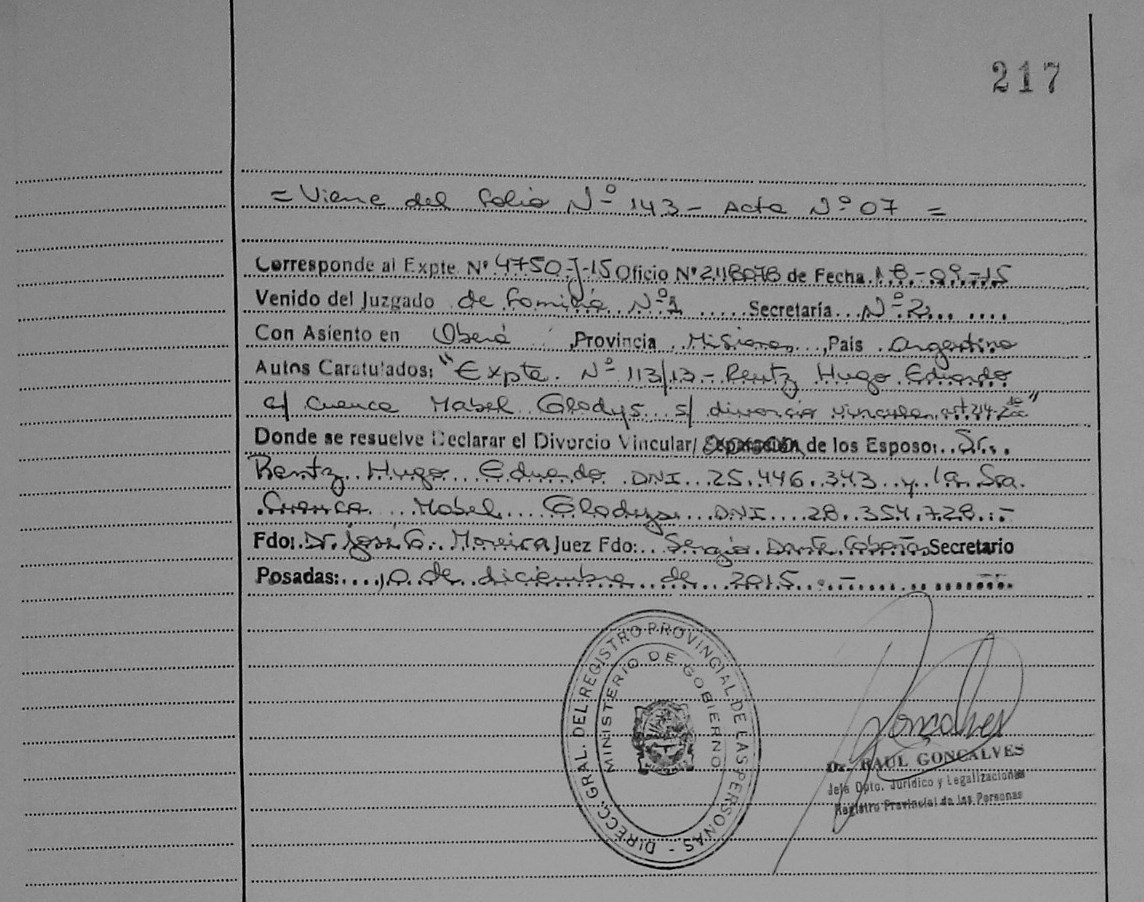 217
= Viene del folio Nº 143 - Acta Nº 07 =
Corresponde al Expte Nº 4750-J-15 Oficio Nº de Fecha 18.-09-15
Venido del Juzgado de Familia Nº1 Secretaría Nº 2
Con Asiento en Oberá Provincia Misiones, País Argentina
Autos Caratulados: "Expte. Nº 113/13.- Rentz Hugo Eduardo
c/ Cuenca Mabel Gladys s/ divorcio vincular art 214 2º"
Donde se resuelve Declarar el Divorcio Vincular/ Separación de los Esposo: Sr.
Rentz Hugo Eduardo DNI 25.446.343 y la Sra.
Cuenca Mabel Gladys DNI 28.354.728.-
Fdo: Dr. José G. Moreira Juez Fdo: Sergio Dante Secretario
Posadas: 10 de diciembre de 2015.-
DIRECC. GRAL. DEL REGISTRO PROVINCIAL DE LAS PERSONAS -
MINISTERIO DE GOBIERNO
Goncalves
Dr. RAUL GONCALVES
Jefe Dpto. Jurídico y Legalizaciones
Registro Provincial de las Personas